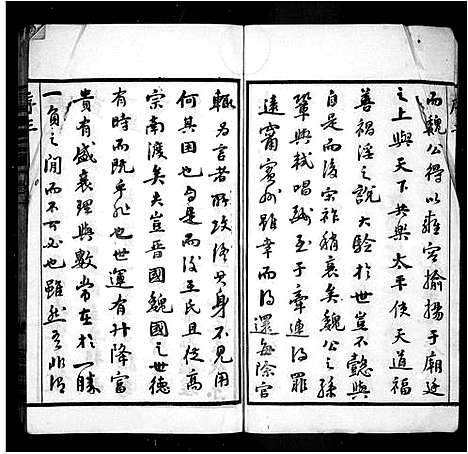 而魏公得以雍容揄揚于廟廷
之上與天下共樂太平使天道福
善禍淫之說大驗於世豈不懿與
自是而後宗祚稍衰矣魏公之孫
鞏與軾唱酬至于牽連得罪
遠竄賓州雖幸而得還每除官
輒為言者所攻終其身不見用
何其困也自是而後王氏且從高
宗南渡矣夫豈晉國魏國之世德
有時而既乎非也世運有升降富
貴有盛衰理與數常在於一勝
一負之間而不可必也雖然吾非謂
序三